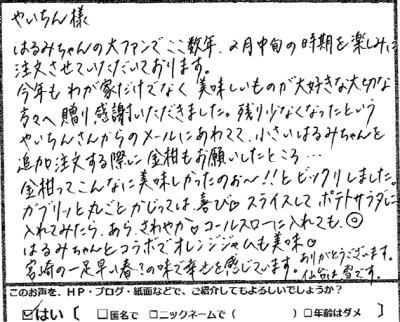 やいちん様
はるみちゃんの大ファンでここ数年、2月中旬の時期を楽しみに
注文させていただいております。
今年もわが家だけでなく美味しいものが大好きな大切な
方々へ贈り感謝いただきました。残り少なくなったという
やいちんさんからのメールにあわてて、小さいはるみちゃんを
追加注文する際に金柑もお願いしたところ…
金柑ってこんなに美味しかったのぉ〜!!とビックリしました。
ガブリッと丸ごとかじっては喜び♡スライスしてポテトサラダに
入れてみたら、あら、さわやか♡コールスローに入れても、◎
はるみちゃんとコラボでオレンジジャムも美味♡
宮崎の一足早い春?の味で幸せを感じています。ありがとうございます。
仙台は雪です。
このお声を、HP・ブログ・紙面などで、ご紹介してもよろしいでしょうか?
☑はい【 □匿名で □ニックネームで( ) □年齢はダメ 】